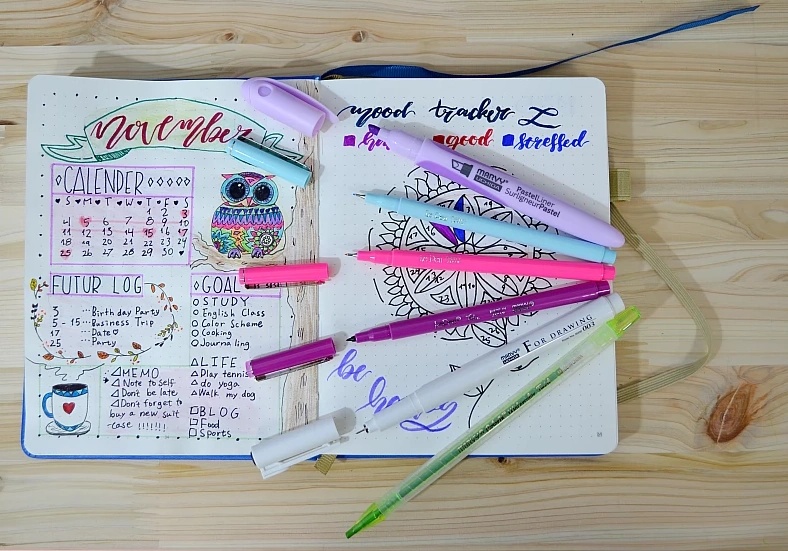 november
CALENDER
S M T W T F S
1 2 3
4 5 6 7 8 9 10
11 12 13 14 15 16 17
18 19 20 21 22 23 24
25 26 27 28 29 30
FUTUR LOG
3 ... Birthday Party
5 - 15 ... Business Trip
17 ... Date
25 ... Party
MEMO
Note to self
Don't be late
Don't forget to
buy a new suit
-case !!!!!!!
GOAL
STUDY
English Class
Color Scheme
Cooking
Journaling
LIFE
Play tennis
do yoga
Walk my dog
BLOG
Food
Sports
mood tracker
good stressed
be
MARVY
UCHIDA
PastelLiner
SurligneurPastel
MARVY
UCHIDA
FOR DRAWING
003